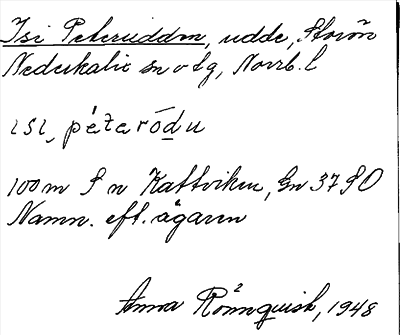 Isi Peterudden, udde, Storön
Nederkalix sn o tg, Norrb. l
isi, péterödu
100 m S n Kattviken, Gn 37 SO
Namn. eft. ägaren
Anna Rönnquist, 1948